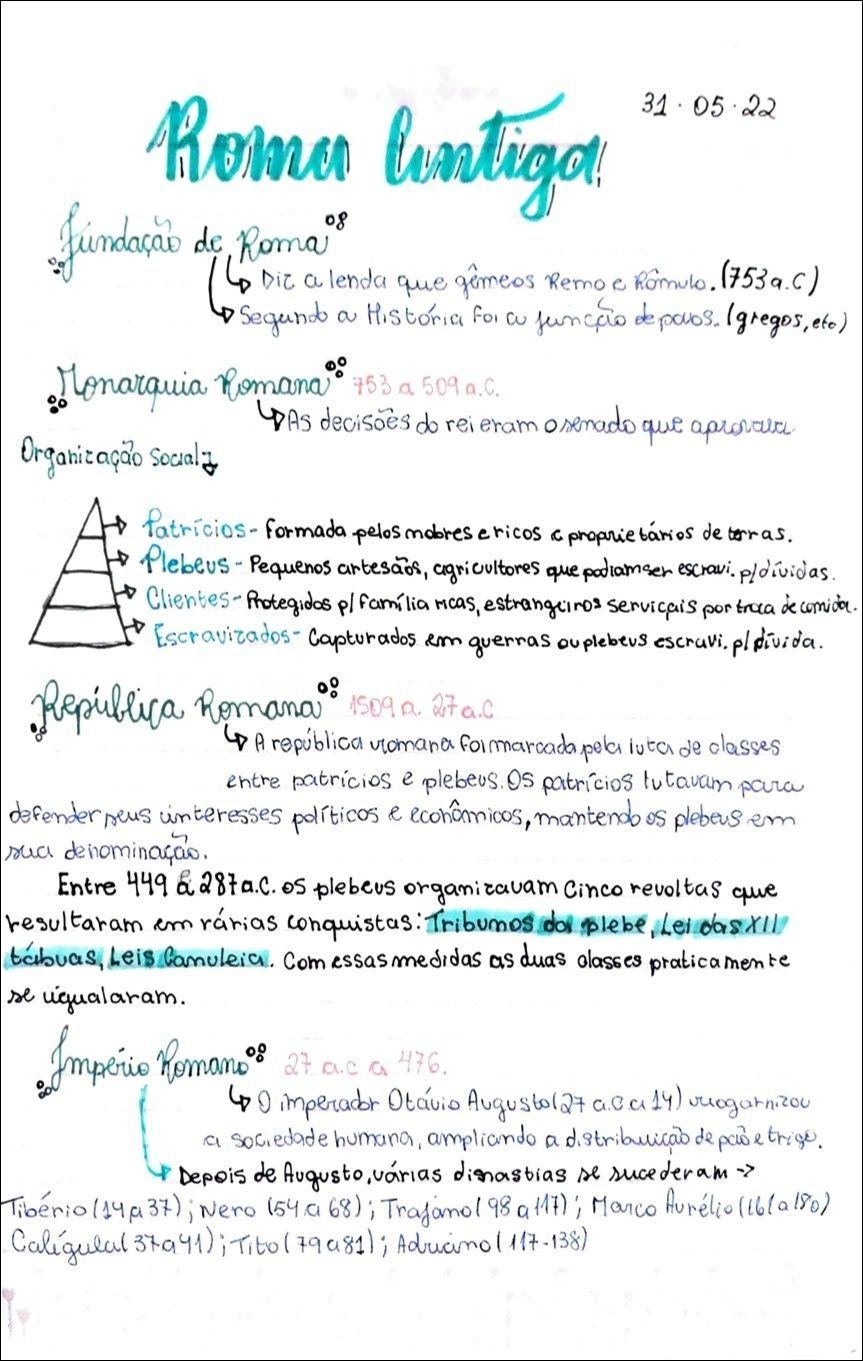 31.05.22
Roma Antiga
Fundação de Roma
Diz a lenda que gêmeos Remo e Rômulo. (753 a.C)
Segundo a História foi a junção de povos. (gregos, etc)
Monarquia Romana 753 a 509 a.C.
As decisões do rei eram o senado que aprovava
Organização Social
Patrícios - Formada pelos nobres e ricos e proprietários de terras.
Plebeus - Pequenos artesãos, agricultores que podiam ser escravi. p/ dívidas.
Clientes - Protegidos p/ família ricas, estrangeiros serviçais por troca de comida.
Escravizados - Capturados em guerras ou plebeus escravi. p/ dívida.
República Romana 1509 a. 27 a.C
A república romana foi marcada pela luta de classes
entre patrícios e plebeus. Os patrícios lutavam para
defender seus interesses políticos e econômicos, mantendo os plebeus em
sua denominação.
Entre 449 a 287 a.C. os plebeus organizavam cinco revoltas que
resultaram em várias conquistas: Tribunos da plebe, Lei das XII
tábuas, Leis Canuleia. Com essas medidas as duas classes praticamente
se igualaram.
Império Romano 27 a.c a 476.
O imperador Otávio Augusto (27 a.C a 14) reogarnizou
a sociedade humana, ampliando a distribuição de pão e trigo.
Depois de Augusto, várias dinastias se sucederam ->
Tibério (14 a 37); Nero (54 a 68); Trajano (98 a 117); Marco Aurélio (161 a 180)
Calígula (37 a 41); Tito (79 a 81); Adriano (117-138)